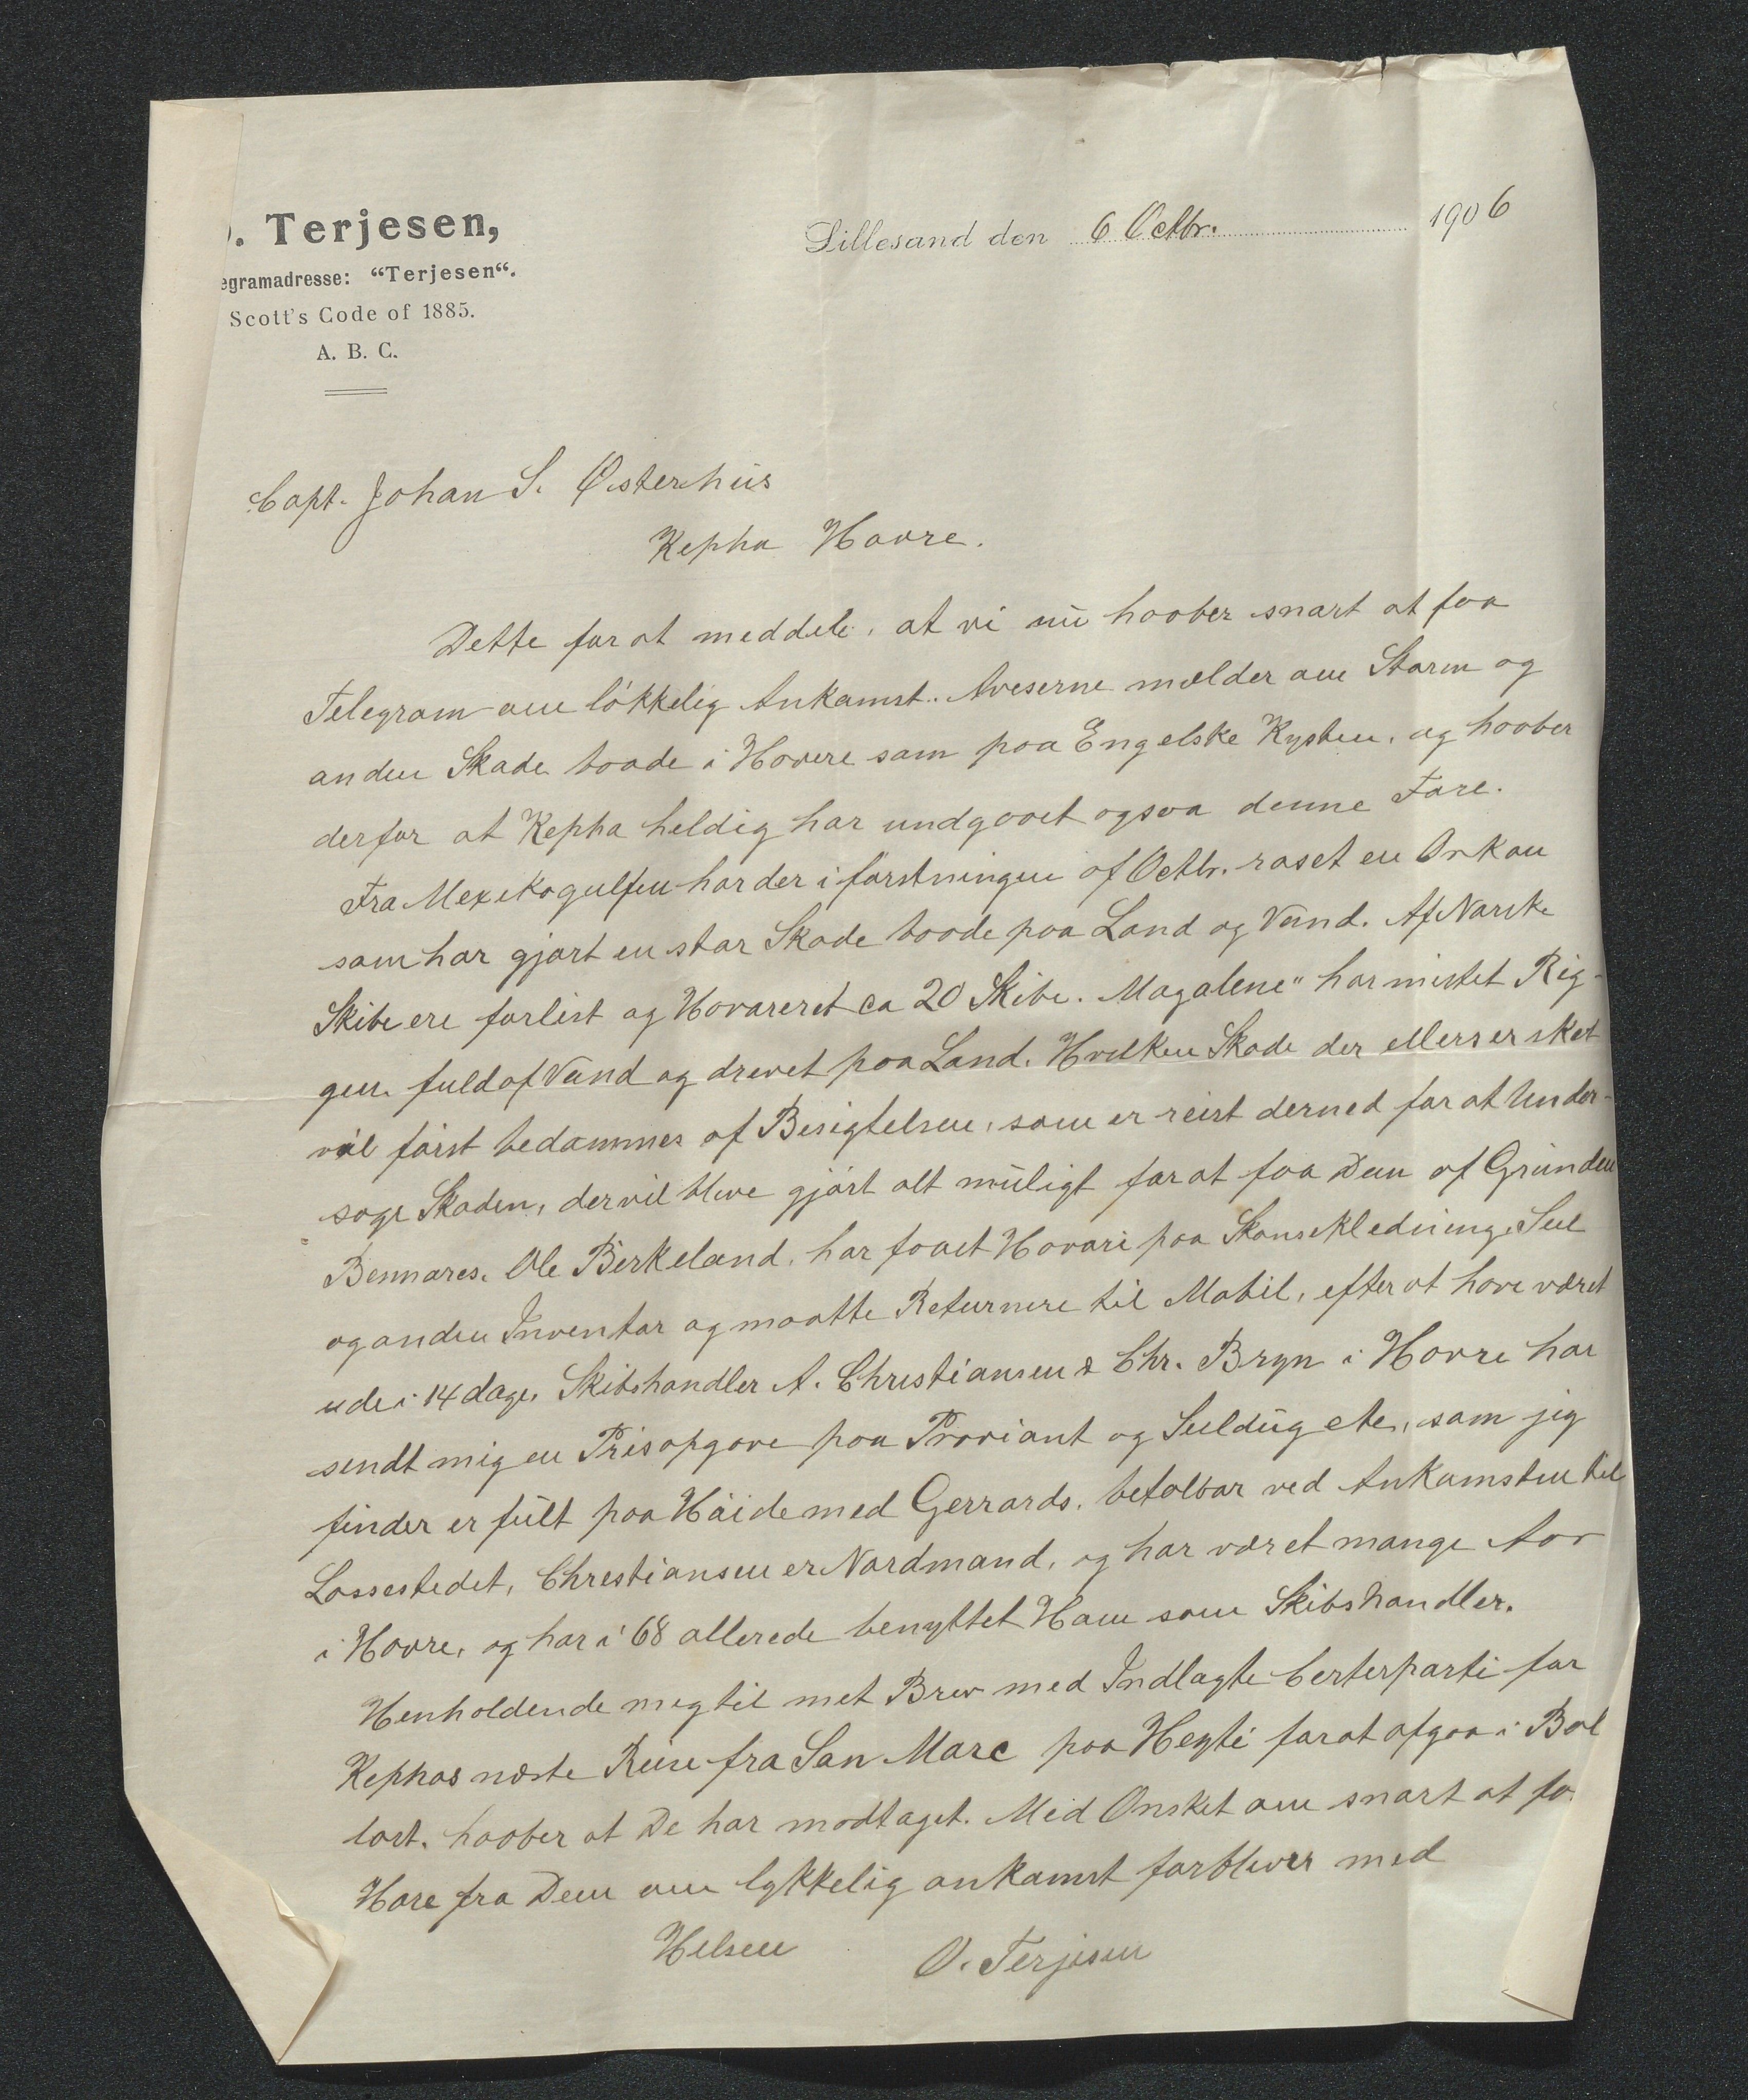 O. Terjesen,
egramadresse: “Terjesen“.
Scott's Code of 1885.
A. B. C.
Lillesand den 6 Octbr. 1906
Capt. Johan S. Østerhus
Kepha Havre.
Dette for at meddele, at vi nu haaber snart at faa
Telegram om lökkelig Ankomst. Aveserne mælder om Storm og
anden Skade baade i Havere som paa Engelske Kysten, og haaber
derfor at Kepha heldig har undgaaet ogsaa denne Fare.
Fra Mexikogulfen har der i förstningen af Octbr. raset en Orkan
som har gjort en stor Skade baade paa Land og Vand. Af Norske
Skibe ere forlist og Havareret ca 20 Skibe. Magalene" har mistet Rig-
gen. fuld af Vand og drevet paa Land. Hvilken Skade der ellers er sket
vil först bedømmes af Besigtelsen, som er reist derned for at Under-
søge Skaden, der vil blive gjört alt muligt for at faa Den af Grunden
Bennares. Ole Birkeland, har faaet Havari paa Skansekledning, Seil
og anden Inventar og maatte Returnere til Mobil, efter at have været
ude i 14 dage. Skibshandler A. Christiansen & Chr. Bryn i Havre har
sendt mig en Prisopgave paa Proviant og Seildug etc, som jeg
finder er fult paa Höide med Gerrards. betalbar ved Ankomsten til
Lossestedet, Christiansen er Nordmand, og har været mange Aar
i Havre, og har i 68 allerede benyttet Ham som Skibshandler.
Henholdende mig til met Brev med Indlagte Certerparti for
Kephas næste Reise fra San Marc paa Heyti for at afgaa i Bal
last. haaber at De har modtaget. Med Onsket om snart at fa
Høre fra Dem om lykkelig ankomst forbliver med
Hilsen O. Terjesen